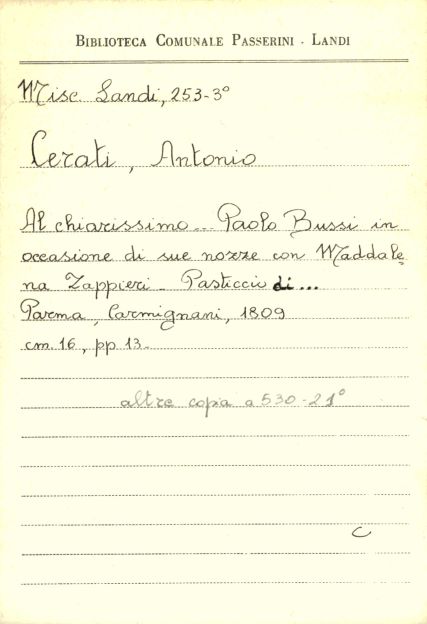 BIBLIOTECA COMUNALE PASSERINI - LANDI
Misc. Landi, 253-3°
Cerati, Antonio
Al chiarissimo... Paolo Bussi in
occasione di sue nozze con Maddale
na Zappieri - Pasticcio di...
Parma, Carmignani, 1809
cm. 16, pp 13-
altre copia a 530-21°
C